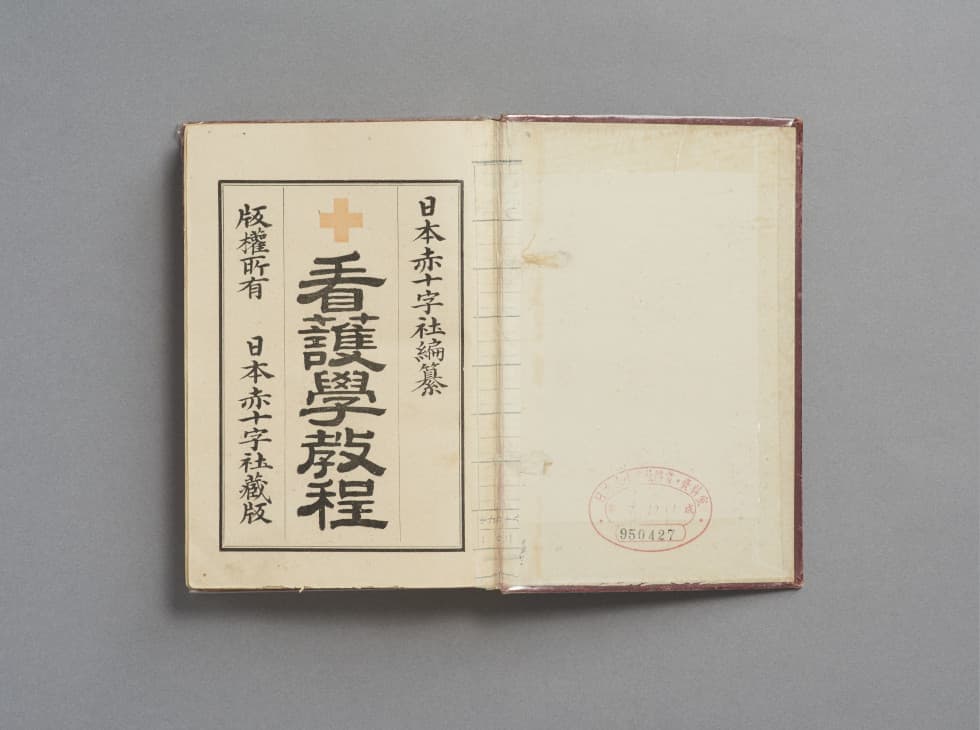 日本赤十字社編纂
看護學教程
版權所有 日本赤十字社藏版
950427